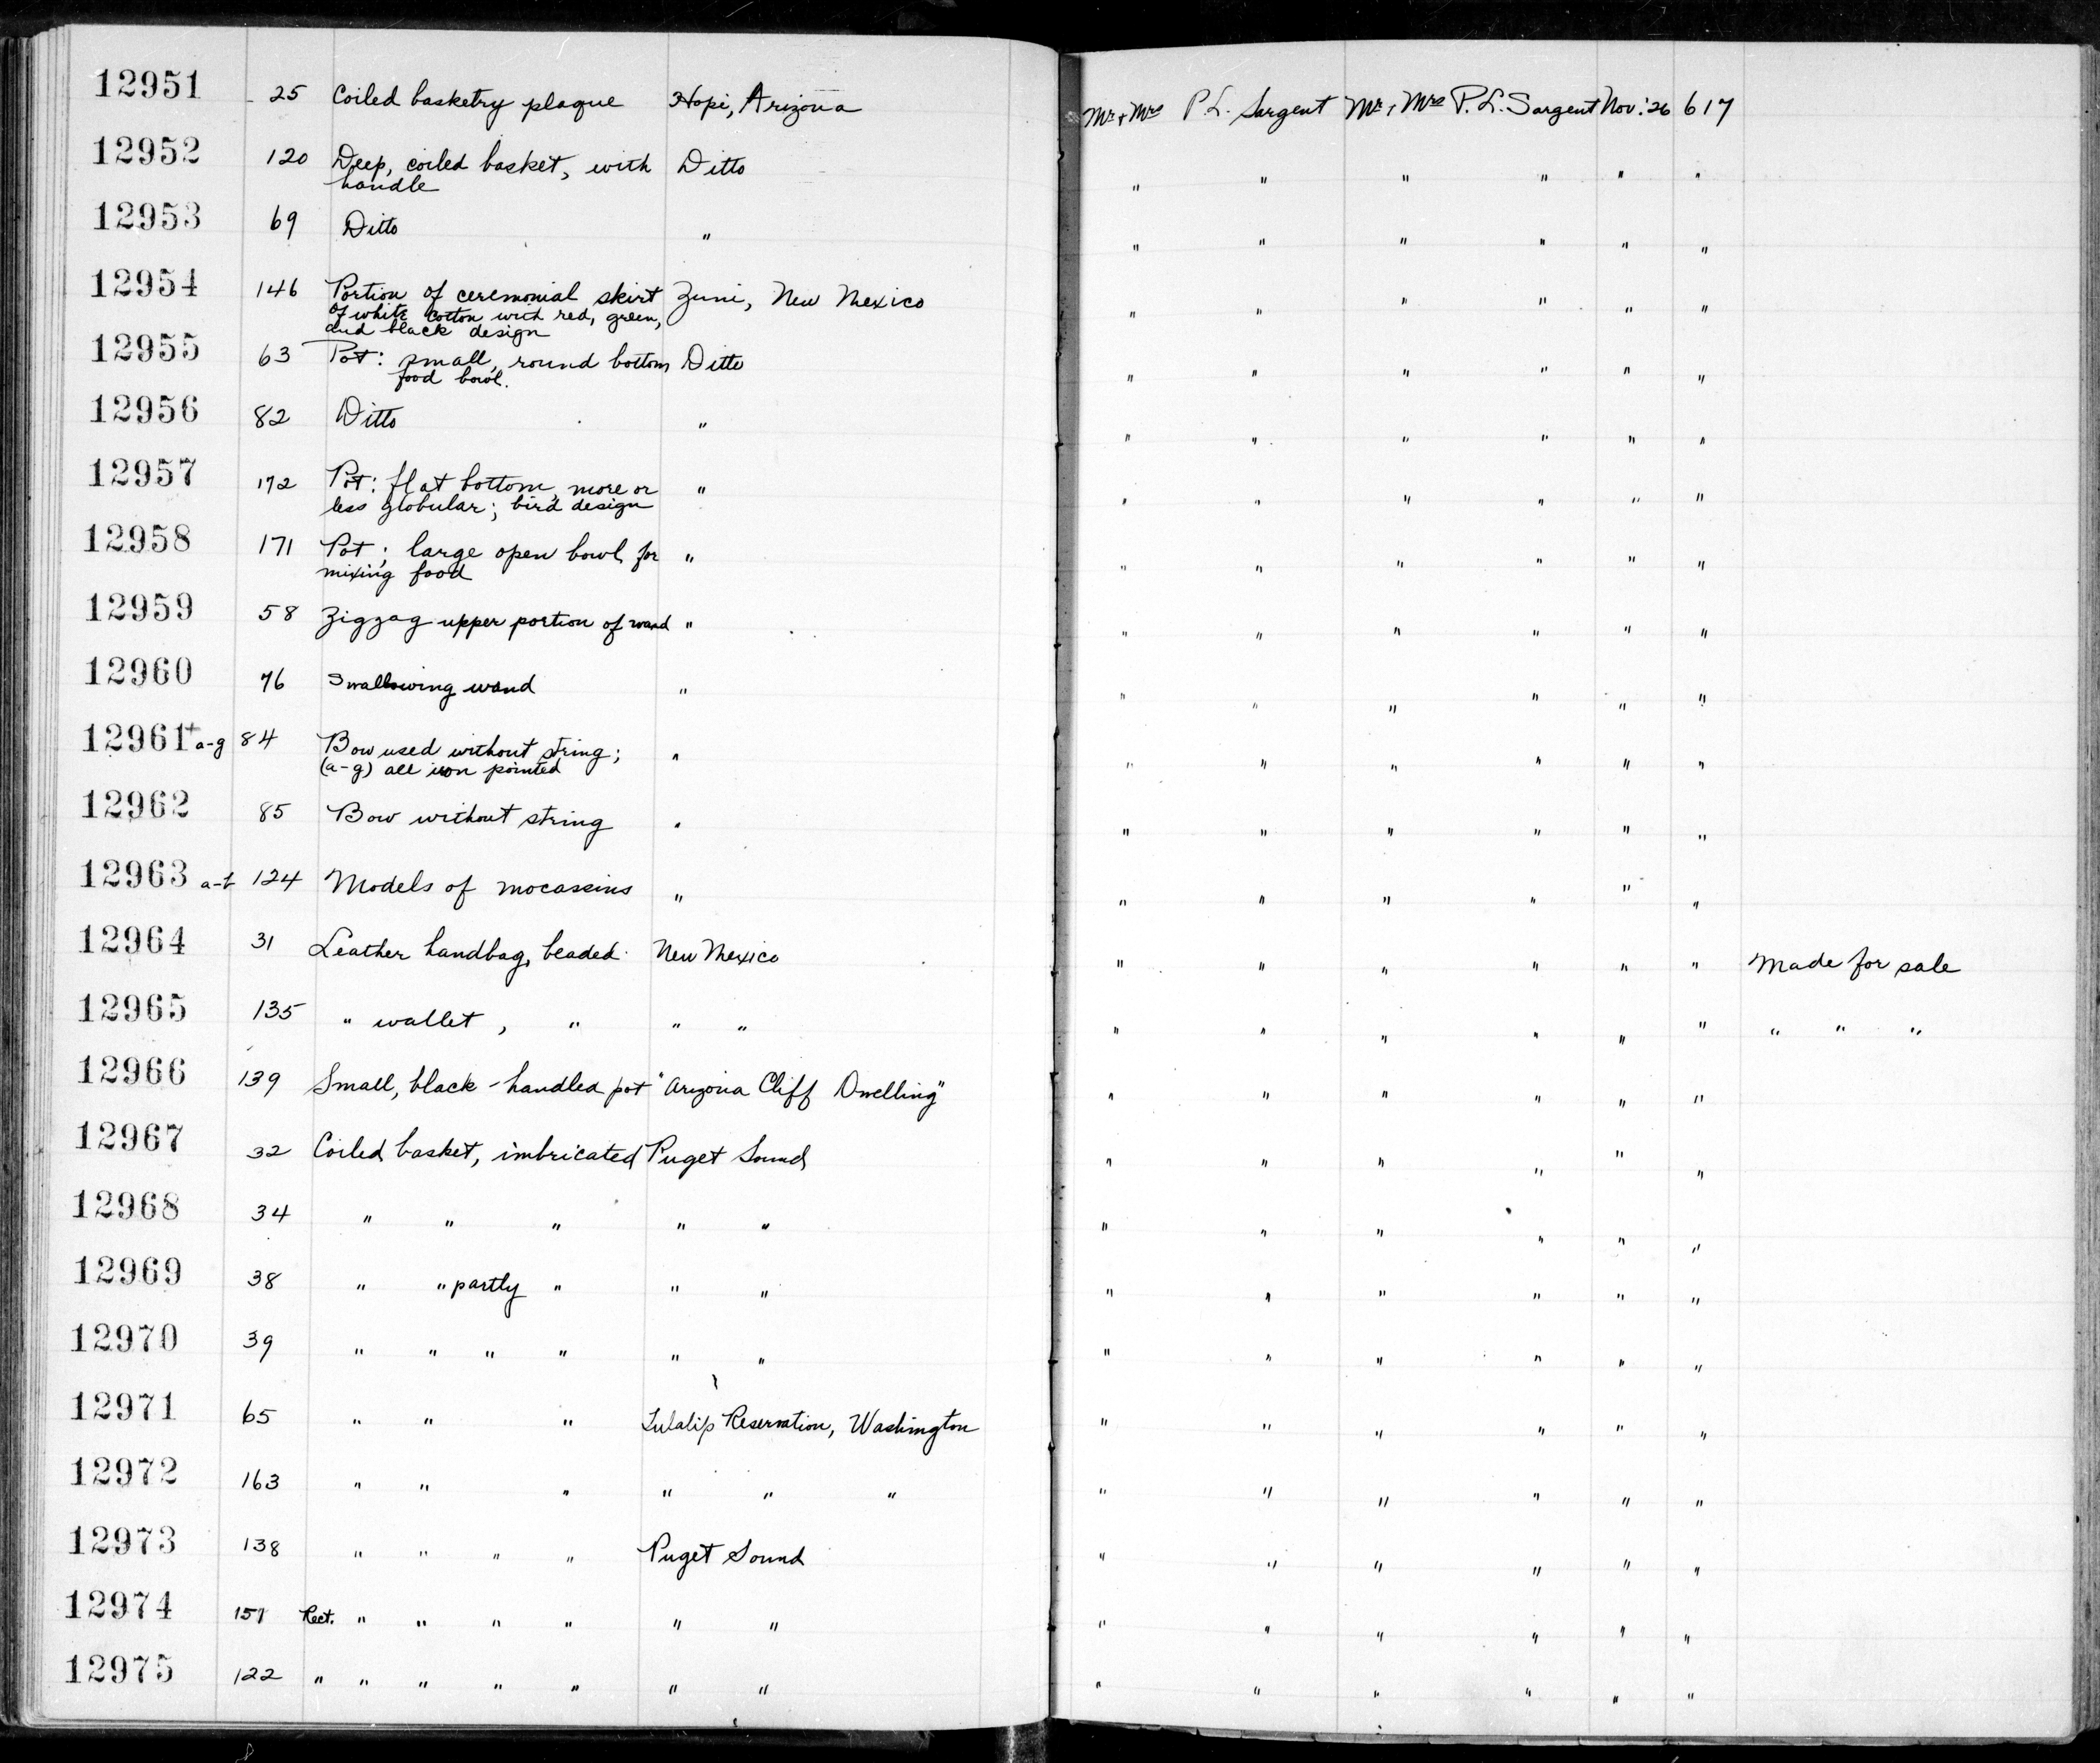 12951 25 Coiled basketry plaque Hopi, Arizona Mr + Mrs P. L. Sargent Mr + Mrs P. L. Sargent Nov. '26 617
12952 120 Deep, coiled basket, with Ditto " " " " " "
handle
12953 69 Ditto " " " " " " "
12954 146 Portion of ceremonial skirt Zuni, New Mexico " " " " " "
of white cotton with red, green,
and black design
12955 63 Pot: small, round bottom Ditto " " " " " "
food bowl.
12956 82 Ditto " " " " " " "
12957 172 Pot: flat bottom, more or " " " " " " "
less globular; bird design
12958 171 Pot; large open bowl for " " " " " " "
mixing food
12959 58 Zigzag upper portion of wand " " " " " " "
12960 76 Swallowing wand " " " " " " "
12961+ a-g 84 Bow used without string; " " " " " " "
(a-g) all iron pointed
12962 85 Bow without string " " " " " " "
12963 a-b 124 Models of mocassins " " " " " " "
12964 31 Leather handbag, beaded New Mexico " " " " " " Made for sale
12965 135 " wallet, " " " " " " " " " " " "
12966 139 Small, black-handled pot "Arizona Cliff Dwelling" " " " " " "
12967 32 Coiled basket, imbricated Puget Sound " " " " " "
12968 34 " " " " " " " " " " "
12969 38 " " partly " " " " " " " " "
12970 39 " " " " " " " " " " " "
12971 65 " " " Tulalip Reservation, Washington " " " " " "
12972 163 " " " " " " " " " " " "
12973 138 " " " " Puget Sound " " " " " "
12974 157 Rect. " " " " " " " " " " " "
12975 122 " " " " " " " " " " " " "